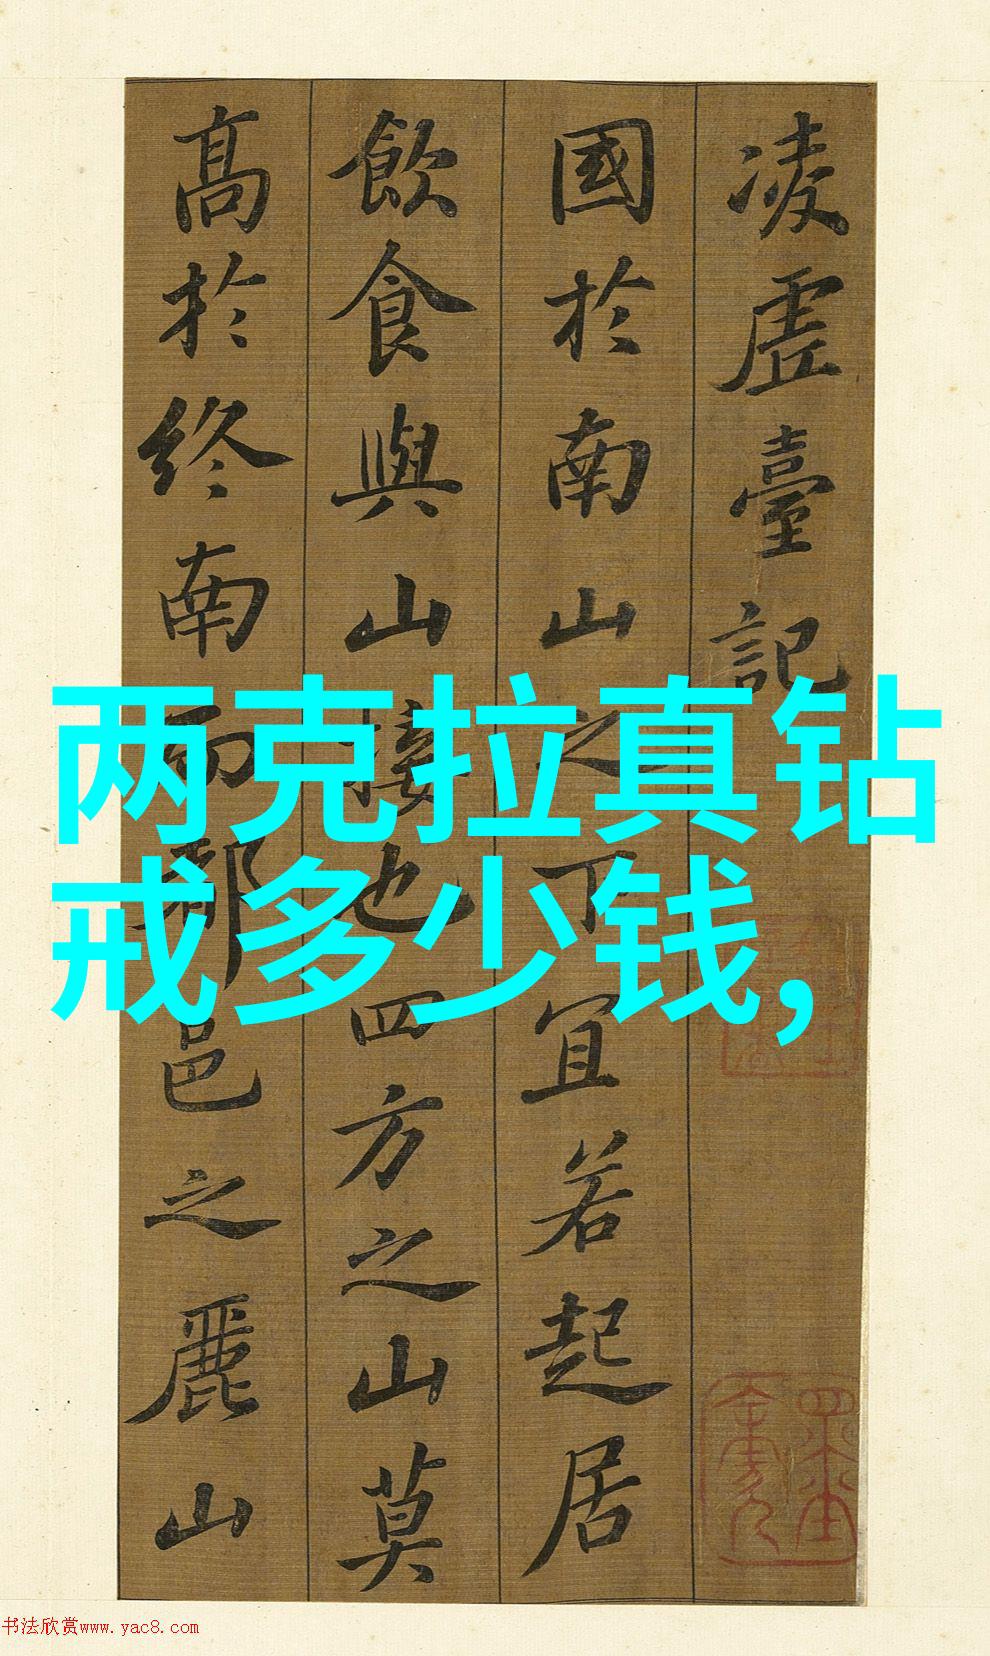 凌虛臺記
國於南山之下宜若起居
飲食與山接也四方之山莫
高於終南而都邑之麗山
两克拉真钻
戒多少钱,
书法欣赏www.yac8.com